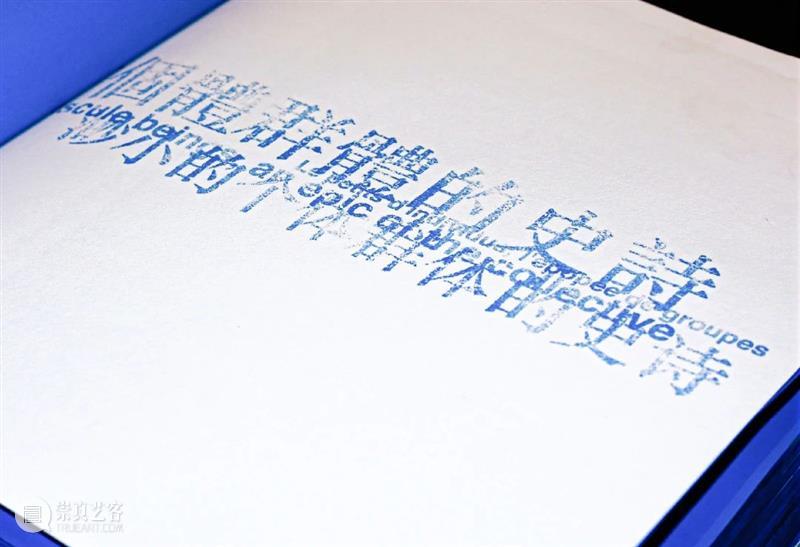 個體群體的史詩
individus, l'épopée de groupes
scule beings an epic of the collective
渺小的个体群体的史诗
崇真艺客
TRUEART.COM